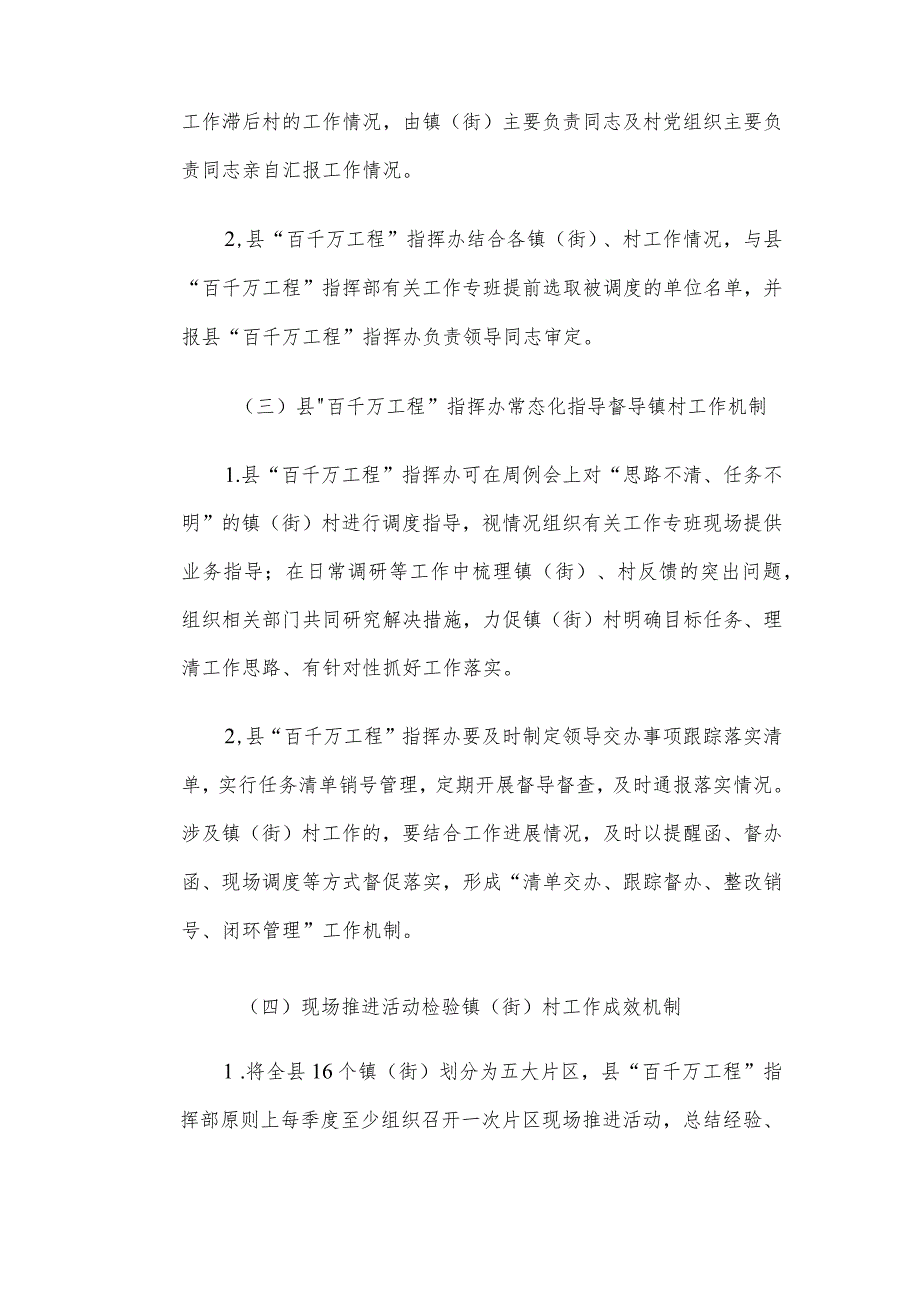 工作滞后村的工作情况，由镇（街）主要负责同志及村党组织主要负
责同志亲自汇报工作情况。
2,县“百千万工程”指挥办结合各镇（街）、村工作情况，与县
“百千万工程”指挥部有关工作专班提前选取被调度的单位名单，并
报县“百千万工程”指挥办负责领导同志审定。
（三）县"百千万工程”指挥办常态化指导督导镇村工作机制
1.县“百千万工程”指挥办可在周例会上对“思路不清、任务不
明”的镇（街）村进行调度指导，视情况组织有关工作专班现场提供
业务指导；在日常调研等工作中梳理镇（街）、村反馈的突出问题，
组织相关部门共同研究解决措施，力促镇（街）村明确目标任务、理
清工作思路、有针对性抓好工作落实。
2,县“百千万工程”指挥办要及时制定领导交办事项跟踪落实清
单，实行任务清单销号管理，定期开展督导督查，及时通报落实情况。
涉及镇（街）村工作的，要结合工作进展情况，及时以提醒函、督办
函、现场调度等方式督促落实，形成“清单交办、跟踪督办、整改销
号、闭环管理”工作机制。
（四）现场推进活动检验镇（街）村工作成效机制
1 .将全县 16 个镇（街）划分为五大片区，县“百千万工程”指
挥部原则上每季度至少组织召开一次片区现场推进活动，总结经验、